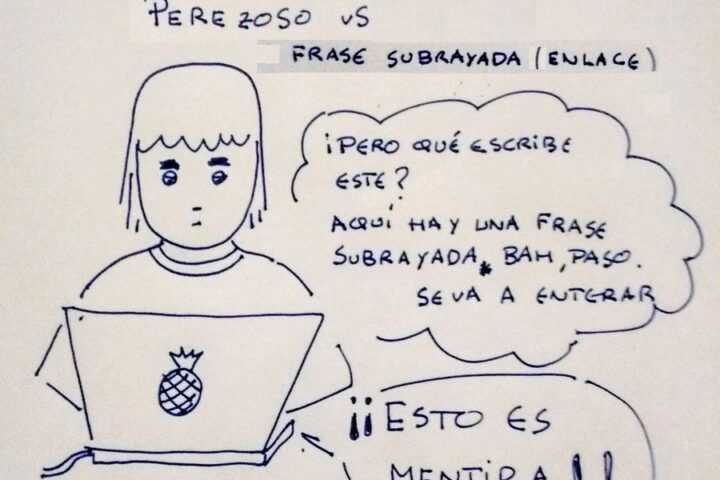 PEREZOSO VS
FRASE SUBRAYADA (ENLACE)
¡PERO QUÉ ESCRIBE
ESTE?
AQUÍ HAY UNA FRASE
SUBRAYADA*. BAH, PASO.
SE VA A ENTERAR
¡¡ESTO ES
MENTIRA!!